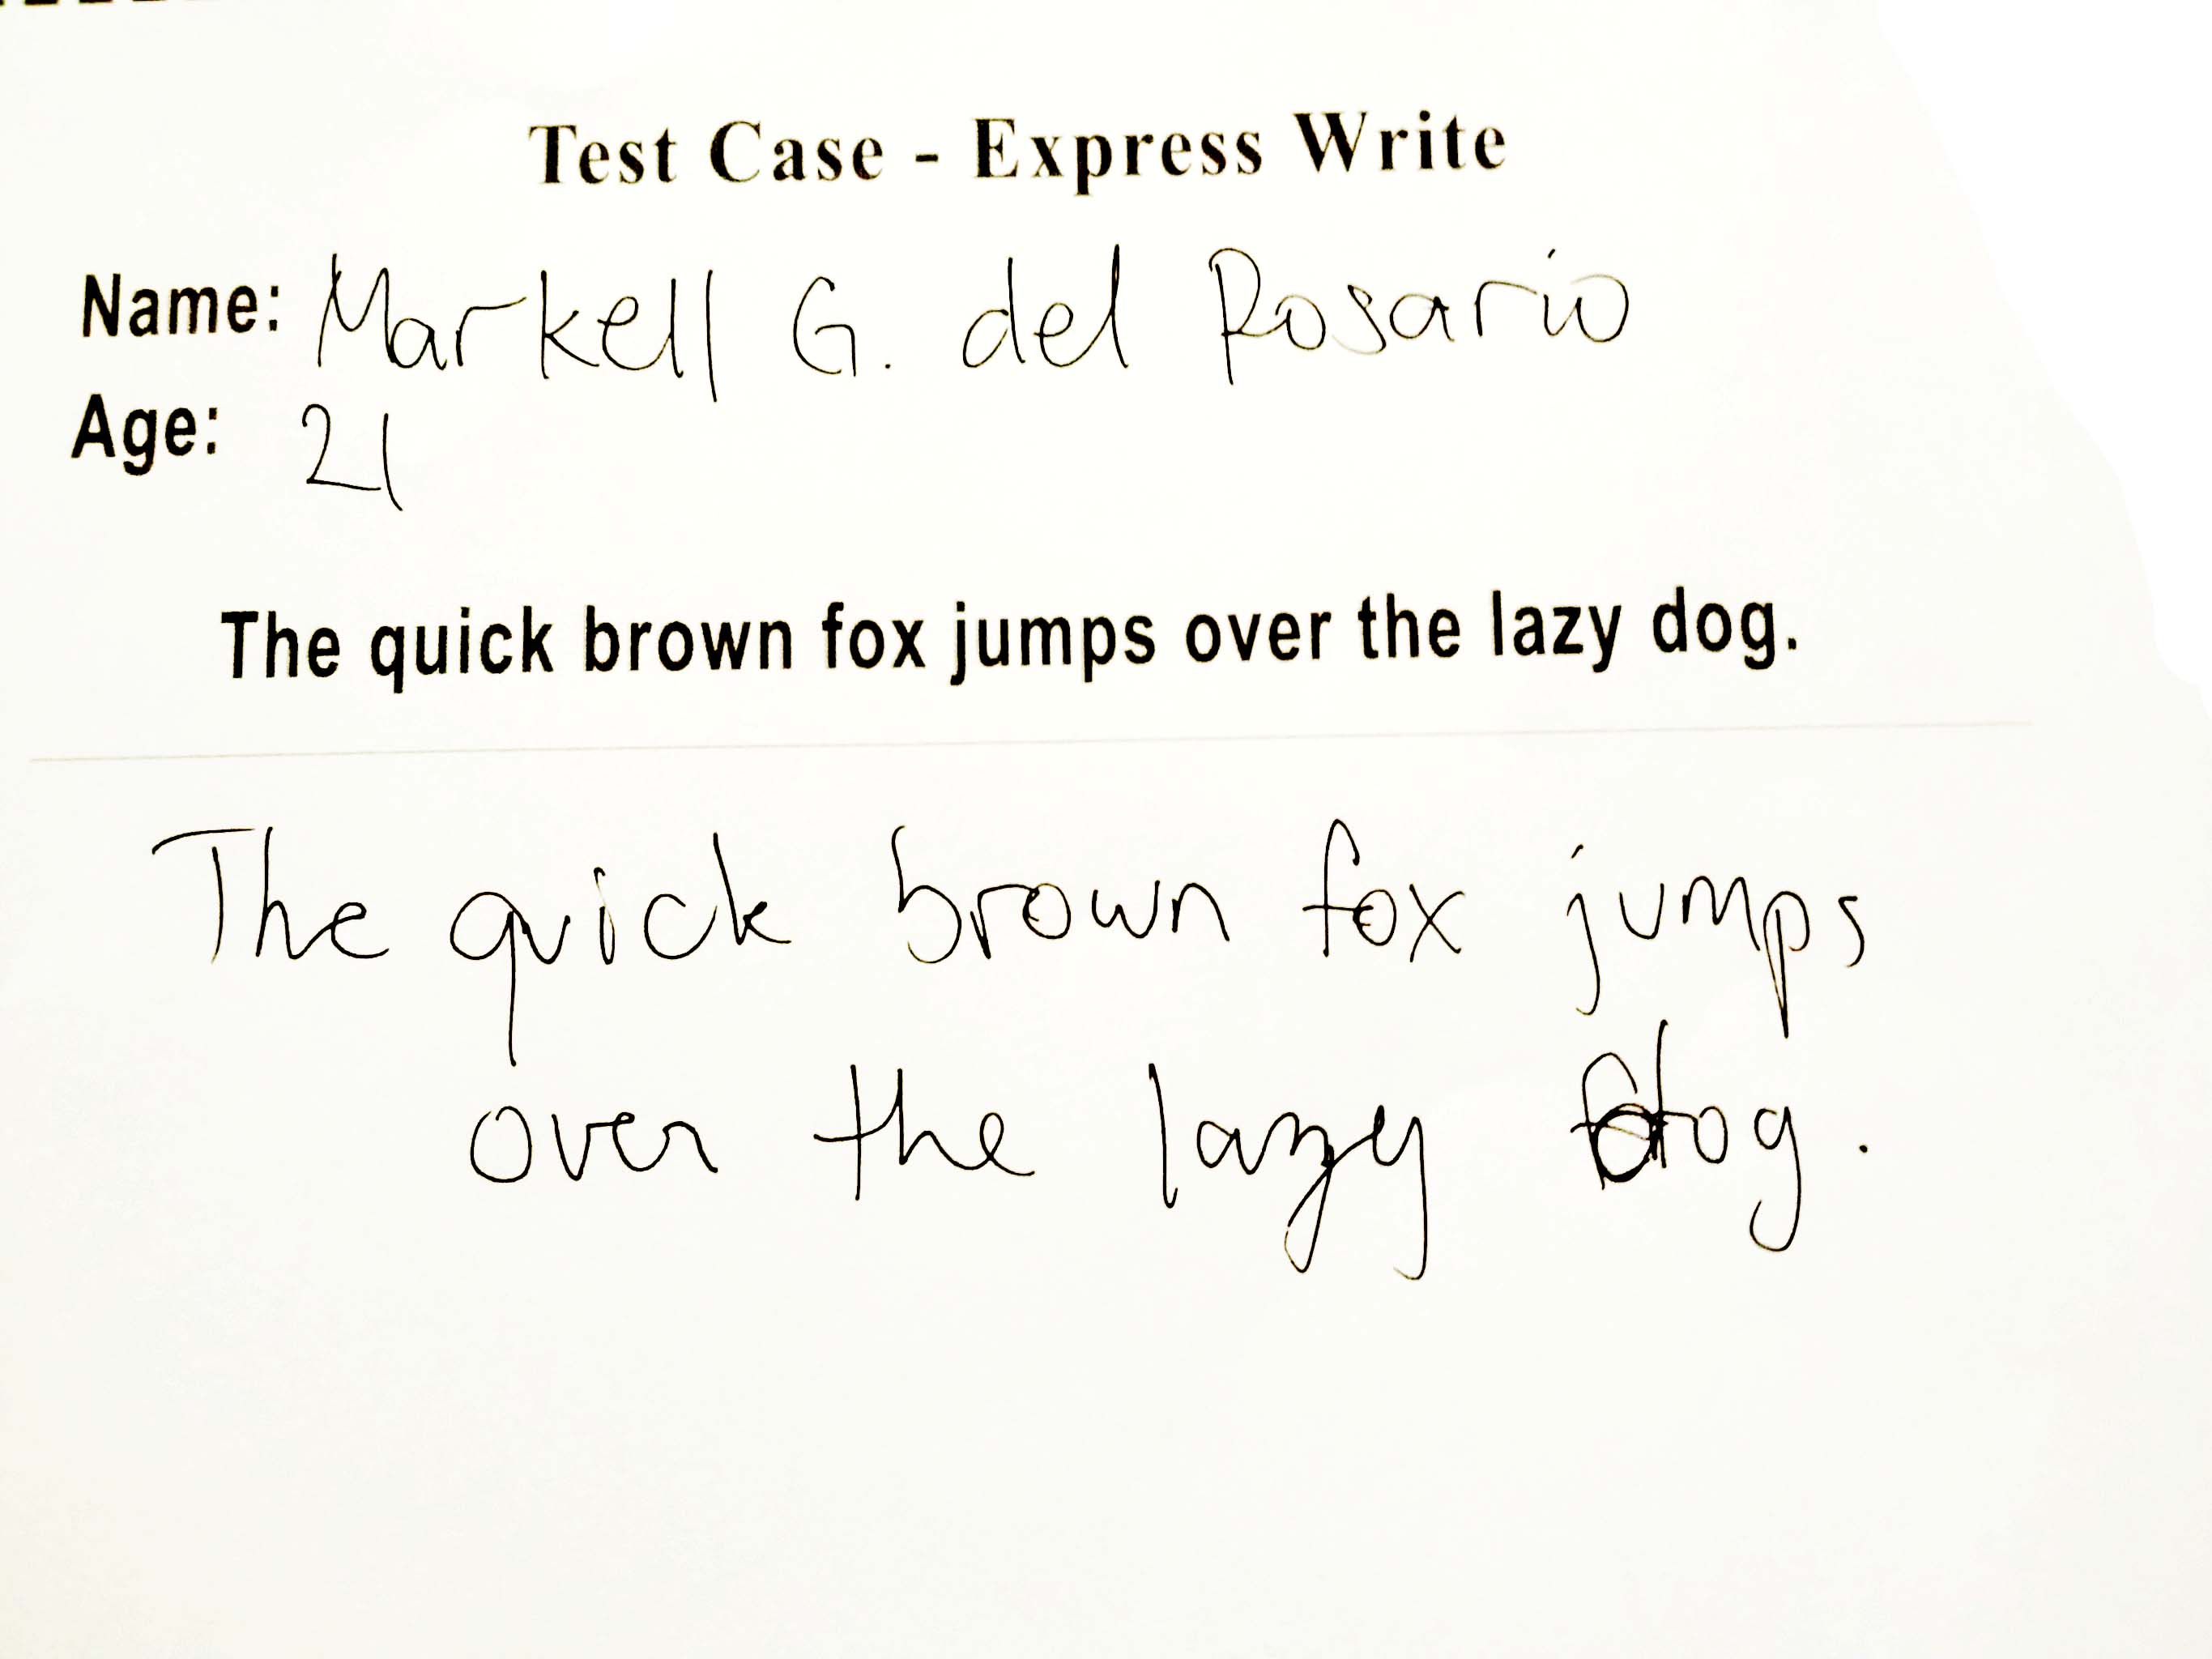 Test Case - Express Write
Name: Markell G. del Rosario
Age: 21
The quick brown fox jumps over the lazy dog.
The quick brown fox jumps
over the lazy dog.